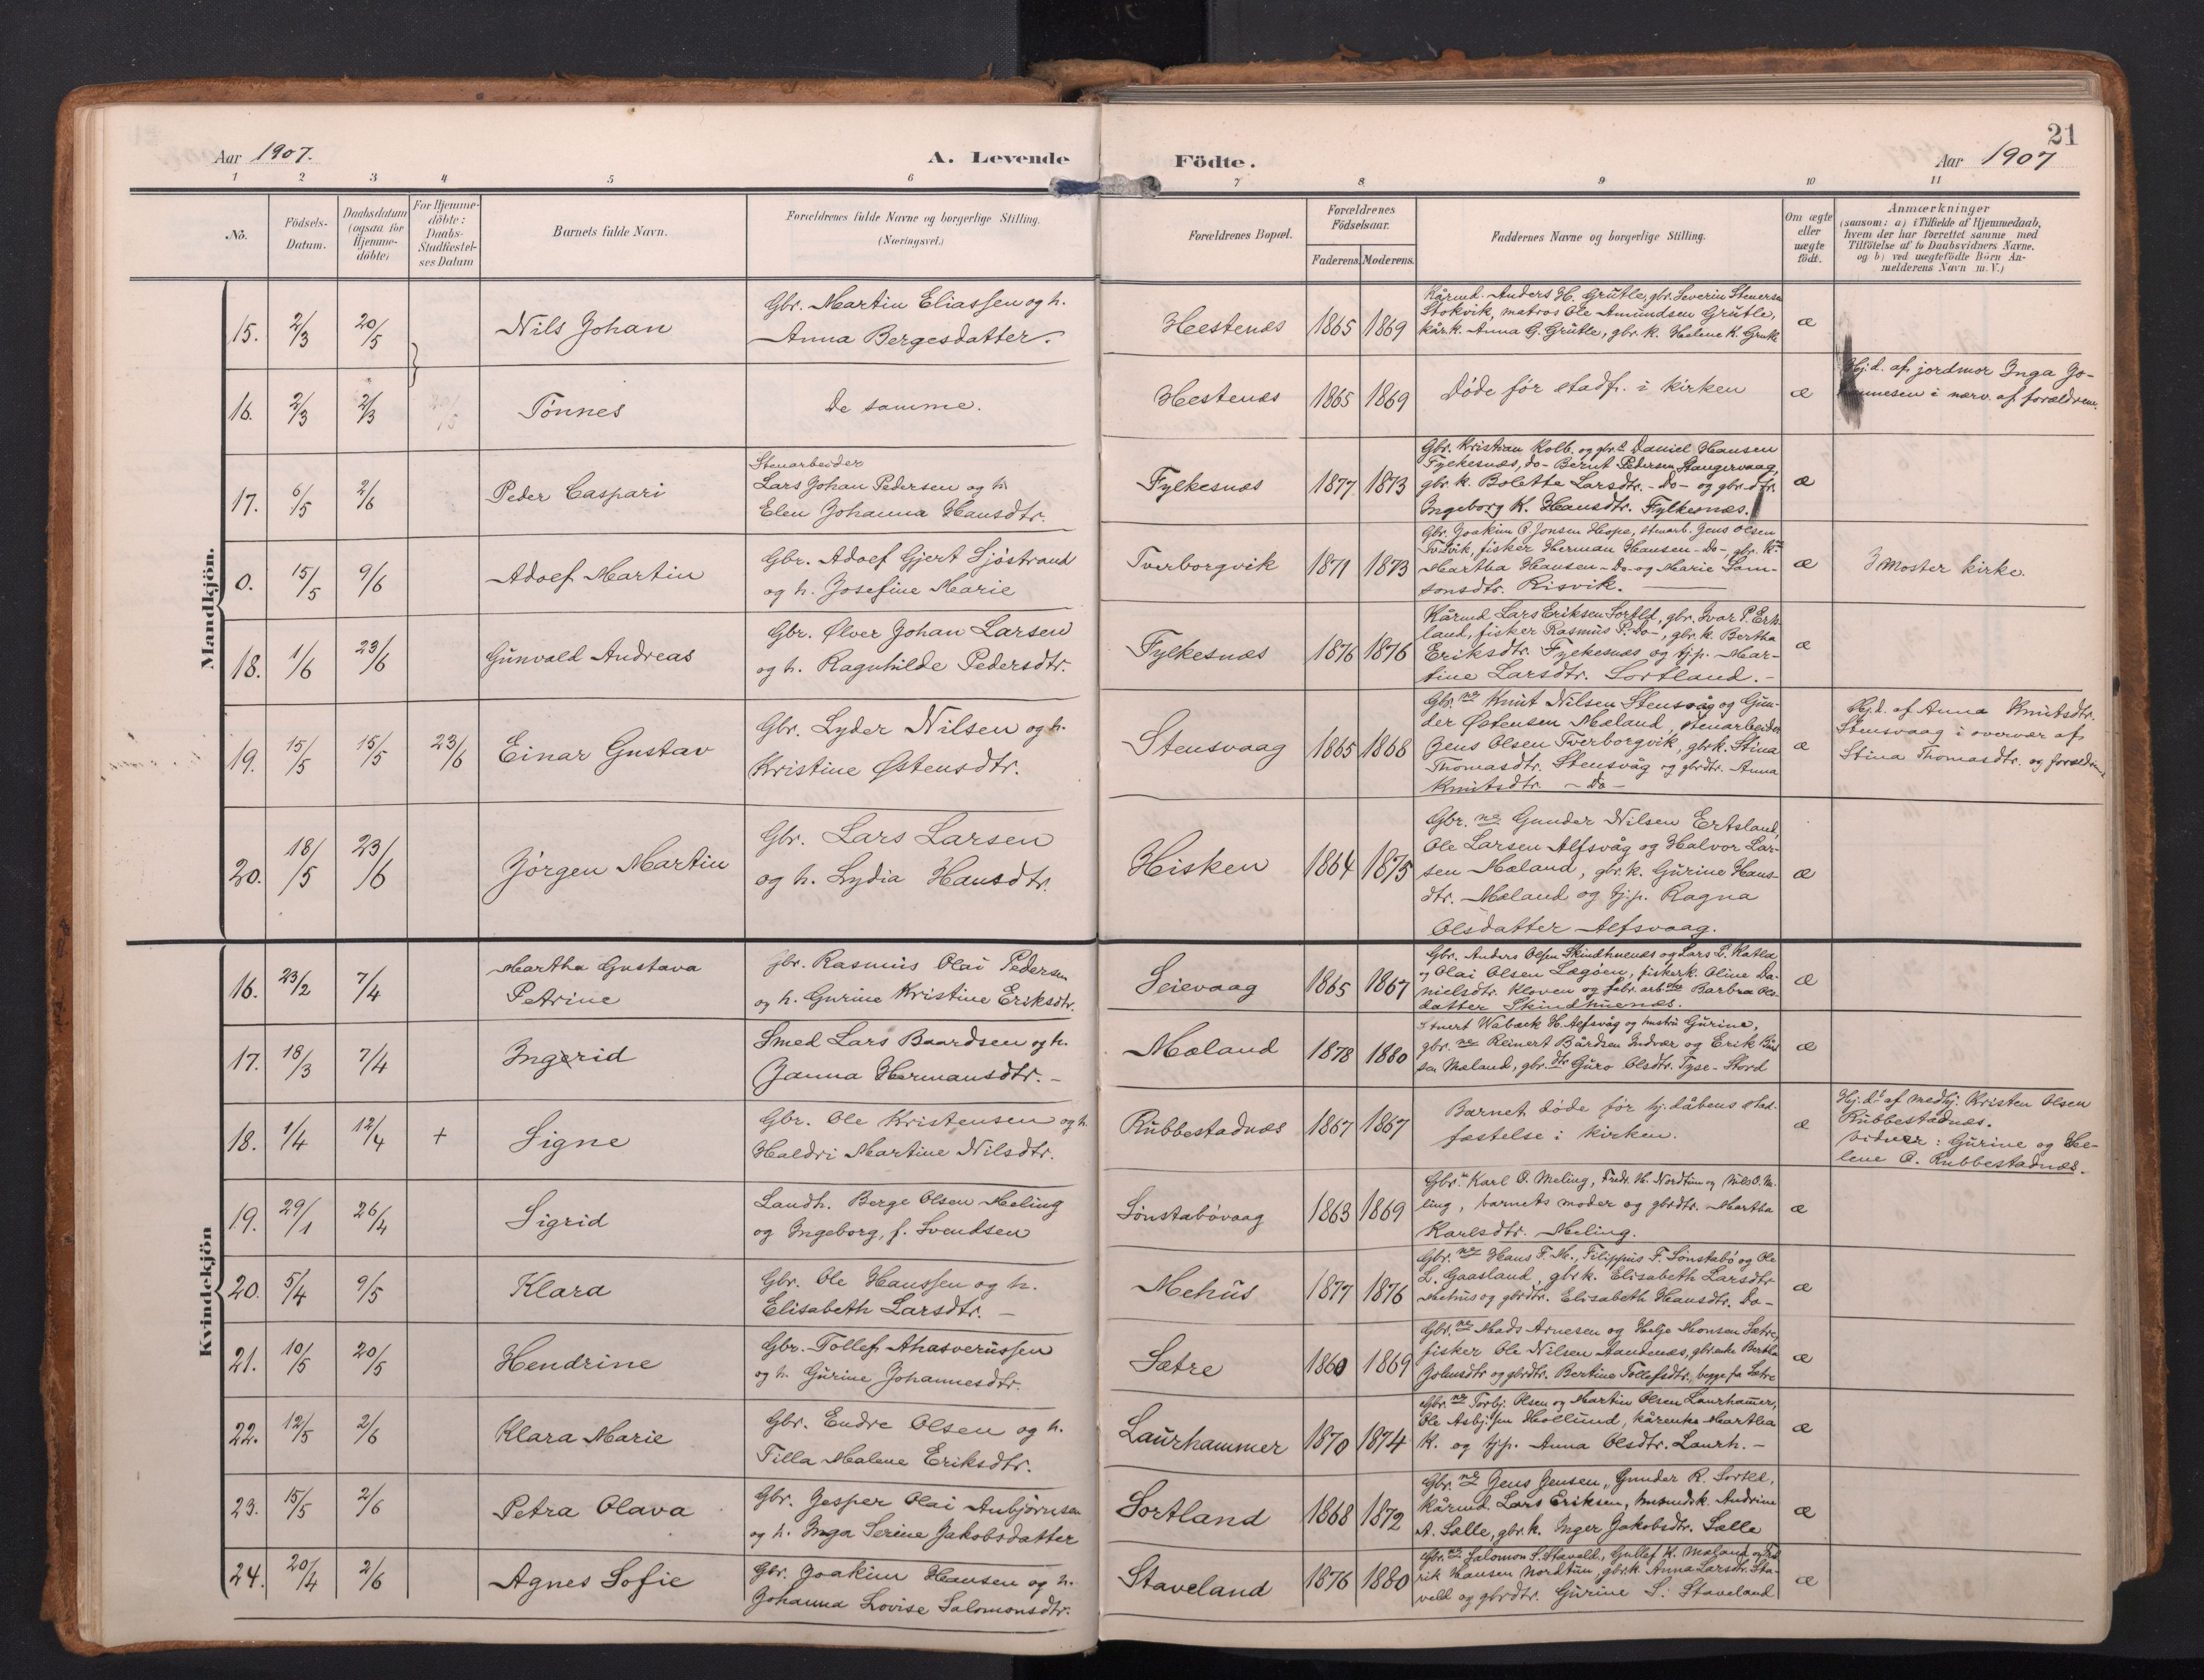 21
Aar 1907.
A. Levende
Födte.
Aar 1907
1 2 3 4 5 6 7 8 9 10 11
No.
Födsels-
Datum.
Daabsdatum
(ogsaa for
Hjemme-
döbte)
For Hjemme-
döbte:
Daabs-
Stadfæstel-
ses Datum
Barnets fulde Navn.
Forældrenes fulde Navne og borgerlige Stilling.
(Næringsvei.)
Forældrenes Bopæl.
Forældrenes
Födselsaar.
Faderens. Moderens.
Faddernes Navne og borgerlige Stilling.
Om ægte
eller
uægte
født.
Anmærkninger
(saasom: a) i Tilfælde af Hjemmedaab,
hvem der har forrettet samme med
Tilföielse af to Daabsvidners Navne.
og b) ved uægtefödte Börn An-
melderens Navn m. V.)
Mandkjön.
15. 2/3 20/5 Nils Johan
Gbr. Martin Eliassen og h.
Anna Bergesdatter.
Hestenæs 1865 1869
Kårmd. Anders H. Grutle, gbr. Severin Stenersen
Stokvik, matros Ole Amundsen Grutle,
kår.k. Anna G. Grutle, gbr. k. Helene K. Grutle
æ
16. 2/3 2/3 Tönnes
De samme.
Hestenæs 1865 1869
Döde för stadf. i kirken
æ
Hj.d. af jordmor Inga Jo-
hannesen i nærv. af forældrene.
17. 6/5 2/6 Peder Caspari
Stenarbeider
Lars Johan Pedersen og h.
Elen Johanna Hansdtr.
Fylkesnæs 1877 1873
Gbr. Kristian Kolb. og gbr. Daniel Hansen
Fylkesnæs, do- Bernt Pedersen Stangervaag,
gbr. k. Bolette Larsdtr. -Do- og gbr.dtr.
Ingeborg K. Hansdtr. Fylkesnæs.
æ
0. 15/5 9/6 Adolf Martin
Gbr. Adolf Gjert Sjöstrand
og h. Josefine Marie
Tverborgvik 1871 1873
Gbr. Joakim P. Jonsen Hope, stenarb. Jens Olsen
Tv.vik, fisker Herman Hansen -Do-, gbr. k.
Martha Hansen -Do- og Marie Sam-
sonsdtr. Risvik.
æ
I Moster kirke.
18. 1/6 23/6 Gunvald Andreas
Gbr. Ølver Johan Larsen
og h. Ragnhilde Pedersdtr.
Fylkesnæs 1876 1876
Kårmd Lars Eriksen Sortld, gbr. Ivar P. Erts-
land, fisker Rasmus P. -Do-, gbr. k. Bertha
Eriksdtr. Fylkesnæs og tj.p. Mar-
tine Larsdtr. Sortland.-
æ
19. 15/5 15/5 23/6 Einar Gustav
Gbr. Lyder Nilsen og h.
Kristine Østensdtr.
Stensvaag 1865 1868
Gbr.ne Knut Nilsen Stensvåg og Gun-
der Østensen Mæland, stenarbeider
Jens Olsen Tverborgvik, gbr k. Stina
Thomasdtr. Stensvåg og gbrdtr. Anna
Knutsdtr. -Do-
æ
Hj.d. af Anna Knutsdtr.
Stensvaag i overvær af
Stina Thomasdtr. og forældrene
20. 18/5 23/6 Jörgen Martin
Gbr. Lars Larsen
og h. Lydia Hansdtr.
Hisken 1864 1875
Gbr. ne Gunder Nilsen Ertsland,
Ole Larsen Alfsvåg og Halvor Lar-
sen Mæland, gbr. k. Gurine Hans-
dtr. Mæland og tj.p. Ragna
Olsdatter Alfsvaag.
æ
Kvindekjön
16. 23/2 7/4 Martha Gustava
Petrine
gbr. Rasmus Olai Pedersen
og h. Gurine Kristine Eriksdtr.
Seievaag 1865 1867
Gbr. Anders Olsen Skindhuenæs og Lars L. Katla
og Olai Olsen Lægöen, fiskerk. Oline Da-
nielsdtr. Kloven og fabr. arb. Barbra Ols-
datter Skindhuenæs.
æ
17. 18/3 7/4 Ingerid
Smed Lars Baardsen og h.
Janna Hermansdtr. -
Mæland 1878 1880
Stuert Waback H. Alfsvåg og hustru Gurine,
gbr. ne Reinert Bårdsen Indvær og Erik Bård
sen Mæland, gbr. dtr Guro Olsdtr. Tyse- Stord
æ
18. 1/4 12/4 + Signe
Gbr. Ole Kristensen og h.
Haldri Martine Nilsdtr.
Rubbestadnæs 1867 1867
Barnet döde för hj.dåbens stad-
fæstelse i kirken.
æ
Hj.d. af medhj. Kristen Olsen
Rubbestadnæs.
Vidner: Gurine og He-
lene O. Rubbestadnæs.
19. 29/1 26/4 Sigrid
Landh. Berge Olsen Meling
og Ingeborg, f. Svendsen
Sönstabövaag 1863 1869
Gbr. Karl O. Meling, Fredr. H. Nordtun og Nils O. Me-
ling, barnets moder og gbrdtr. Martha
Karlsdtr. Meling.
æ
20. 5/4 9/5 Klara
Gbr. Ole Hanssen og h.
Elisabeth Larsdtr. -
Mehus 1877 1876
Gbr. ne Hans F. M., Filippus F. Sönstabö og Ole
L. Gaasland, gbr k. Elisabeth Larsdtr
Mehus og gbrdtr. Elisabeth Hansdtr. Do-
æ
21. 10/5 20/5 Hendrine
Gbr. Tollef Ahasverussen
og h. Gurine Johannesdtr.
Sætre 1860 1869
Gbr. ne Mads Arnesen og Helje Monsen Sætre,
fisker Ole Nilsen Aandenæs, gbr.enke Bertha
Johnsdtr og gbrdtr. Bertine Tollefsdtr, begge fra Sætre
æ
22. 12/5 2/6 Klara Marie
Gbr. Endre Olsen og h.
Tilla Malene Eriksdtr.
Laurhammer 1870 1874
Gbr. ne Torbj. Olsen og Martin Olsen Laurhamer,
Ole Asbj.sen Hollund, kårenke Martha
K. og tj.p. Anna Olsdtr. Laurh. -
æ
23. 15/5 2/6 Petra Olava
Gbr. Jesper Olai Anbjörnsen
og h. Inga Serine Jakobsdatter
Sortland 1868 1872
Gbr. ne Jens Jensen, Gunder R. Sortld,
kårmd. Lars Eriksen, husmdsk. Andrine
A. Salle, gbr. k. Inger Jakobsdtr. Salle
æ
24. 20/4 2/6 Agnes Sofie
Gbr. Joakim Hansen og h.
Johanna Lovise Salomonsdtr.
Staveland 1876 1880
Gbr. ne Salomon S. Staveld., Gullef K. Mæland og Fred-
rik Hansen Nordtun, gbr.k. Anna Larsdtr. Sta-
veld og gbrdtr. Gurine S. Staveland
æ